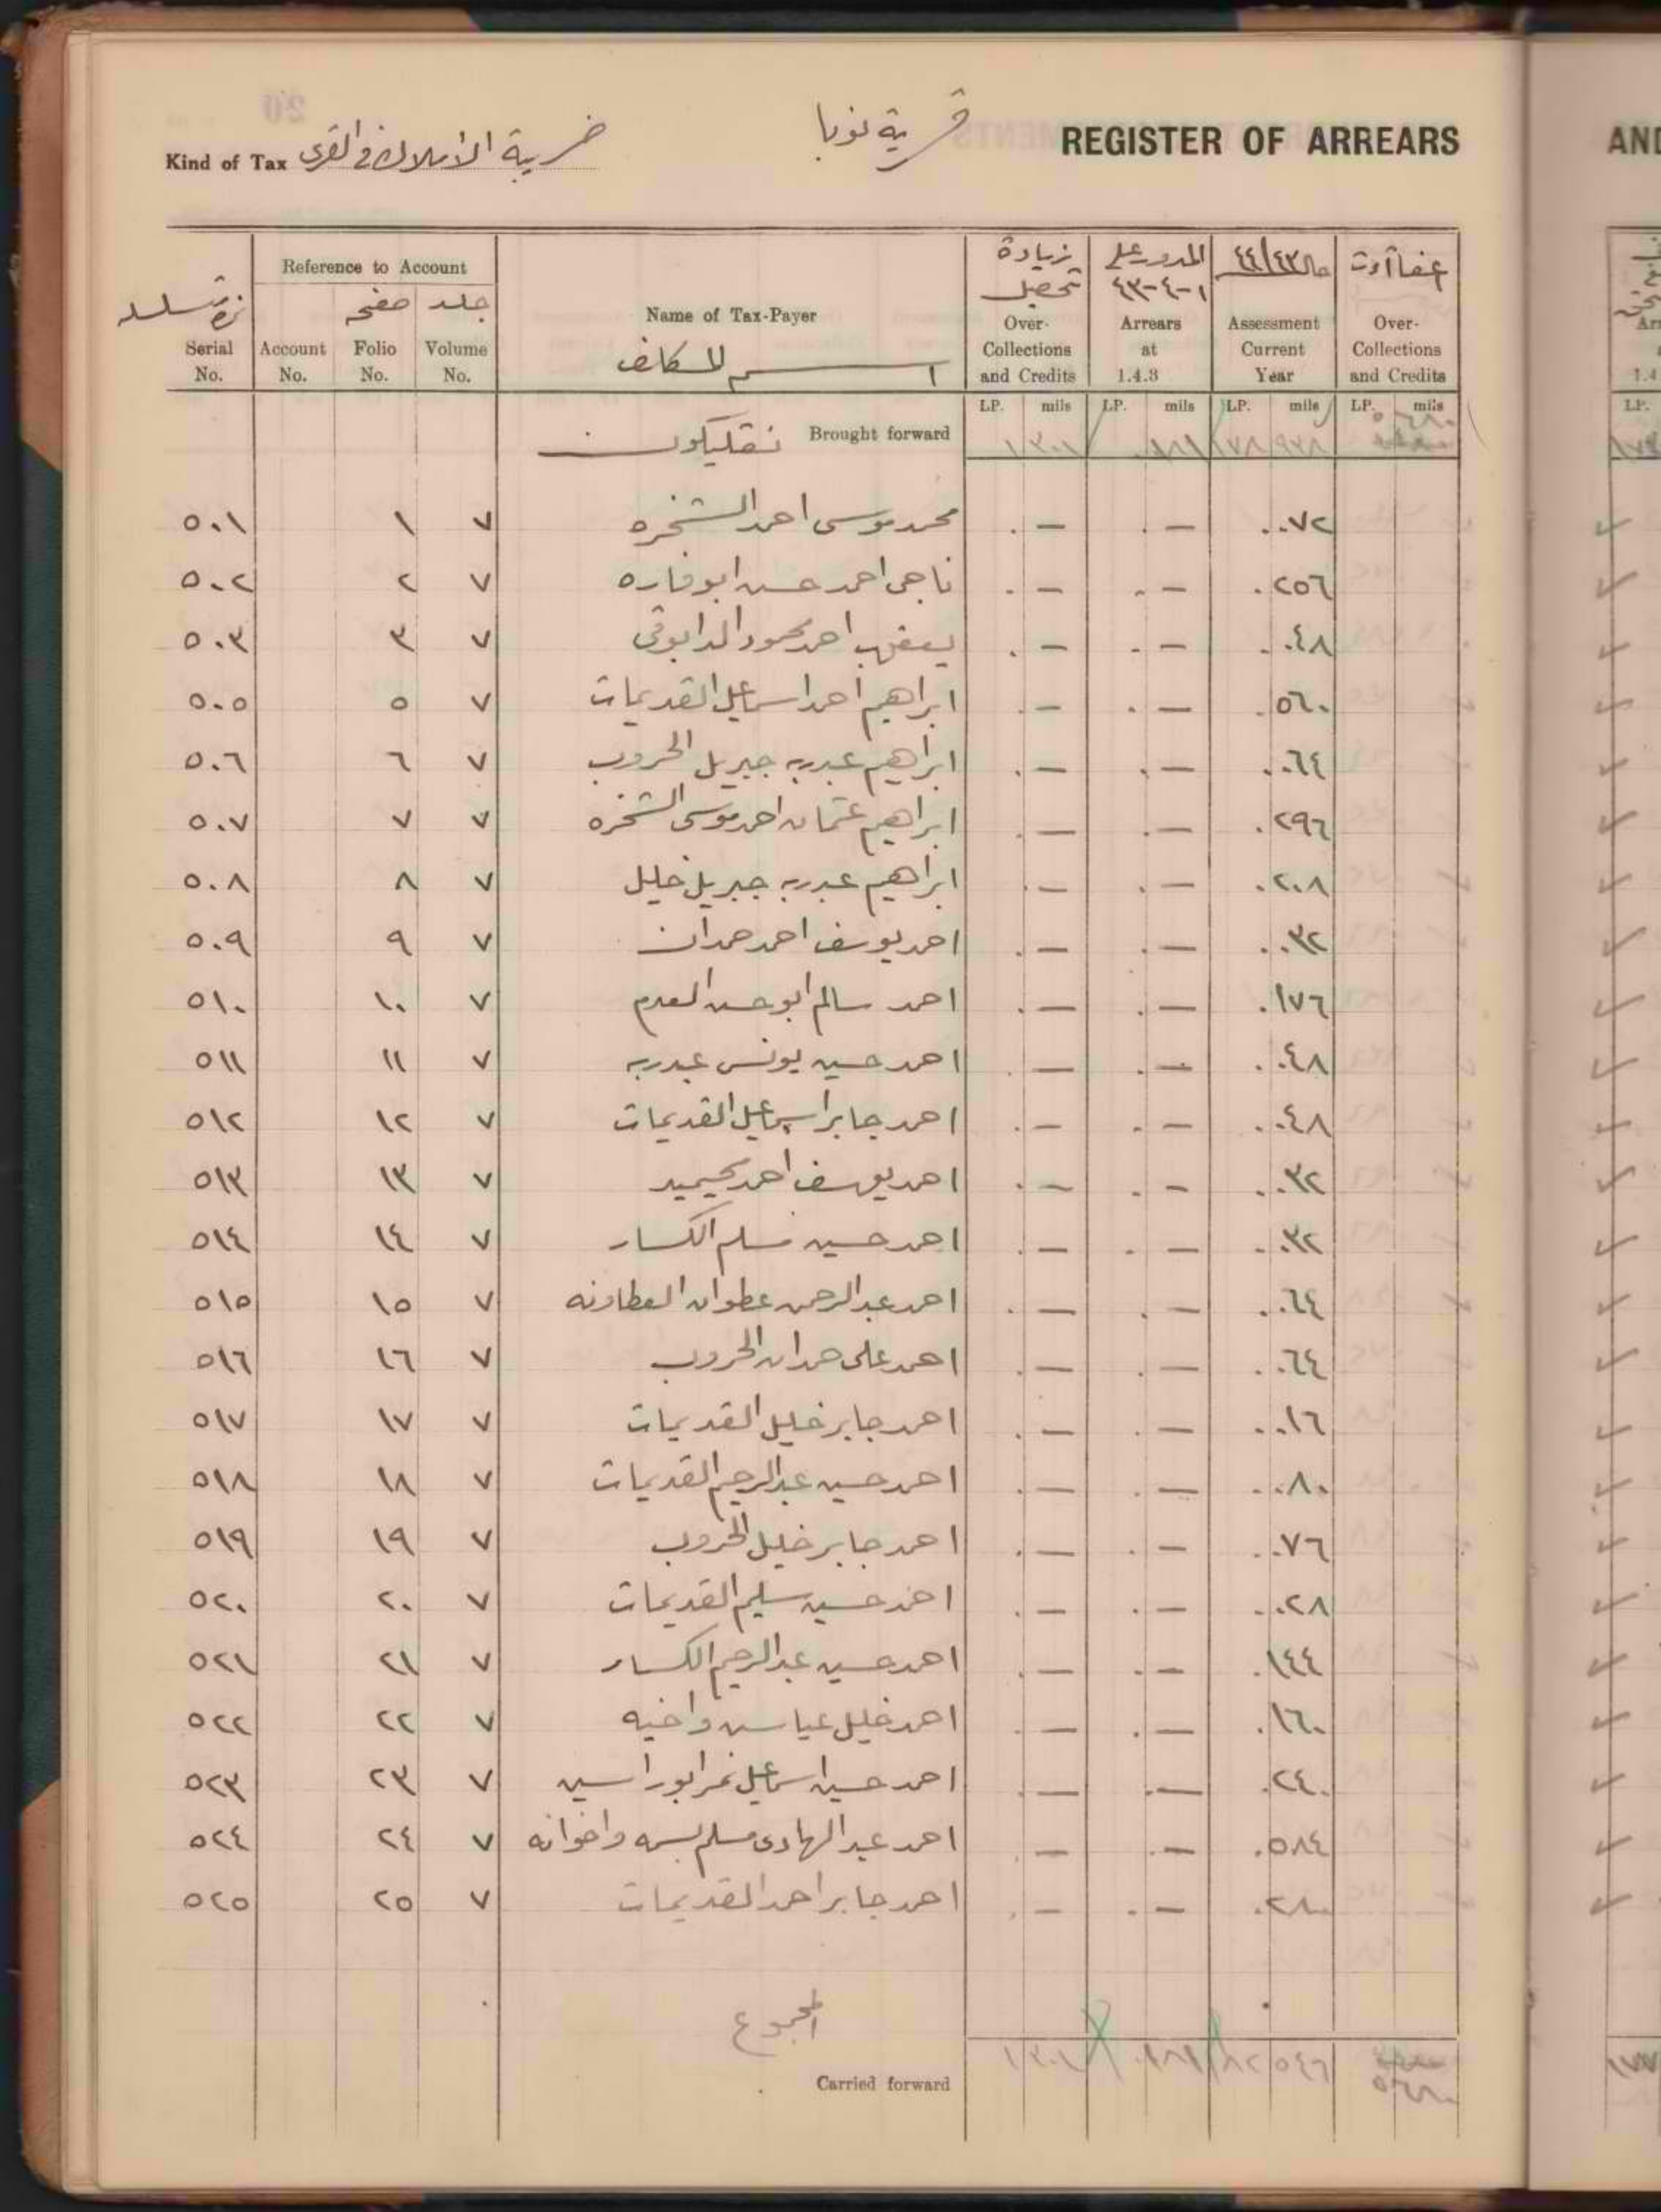 REGISTER OF ARREARS
قرية نوبا
Kind of Tax ضريبة الأملاك في القرى
Reference to Account
Serial No.
Account No.
صفحه Folio No.
جلد Volume No.
Name of Tax-Payer
اسم المكلف
زيادة تحصيل Over-Collections and Credits
المدور على ١-٤-٤٣ Arrears at 1.4.3
٤٤/٤٣ Assessment Current Year
Over-Collections and Credits
LP. mils LP. mils LP. mils LP. mils
Brought forward ١ ٣٠١ ١٨١ ٧٨ ٩٣٨
٥٠١ ١ ٧ محمد موسى احمد الشخره . — . — ..٧٢
٥٠٢ ٢ ٧ ناجي احمد حسن ابو فاره . — . — .٢٥٦
٥٠٣ ٣ ٧ يعقوب احمد محمود الدابوقي . — . — ..٤٨
٥٠٥ ٥ ٧ ابراهيم احمد اسماعيل القديمات . — . — .٥٦٠
٥٠٦ ٦ ٧ ابراهيم عبدربه جبريل الخروب . — . — ..٦٤
٥٠٧ ٧ ٧ ابراهيم عثمان احمد موسى الشخره . — . — .٢٩٦
٥٠٨ ٨ ٧ ابراهيم عبدربه جبريل خليل . — . — .٢٠٨
٥٠٩ ٩ ٧ احمد يوسف احمد حمدان . — . — ..٣٢
٥١٠ ١٠ ٧ احمد سالم ابو حسن العدم . — . — .١٧٦
٥١١ ١١ ٧ احمد حسين يونس عبدربه . — . — ..٤٨
٥١٢ ١٢ ٧ احمد جابر اسماعيل القديمات . — . — ..٤٨
٥١٣ ١٣ ٧ احمد يوسف احمد . — . — ..٣٢
٥١٤ ١٤ ٧ احمد حسين مسلم الكسار . — . — ..٣٢
٥١٥ ١٥ ٧ احمد عبدالرحمن عطوان العطاونه . — . — ..٦٤
٥١٦ ١٦ ٧ احمد على حمدان الخروب . — . — ..٦٤
٥١٧ ١٧ ٧ احمد جابر خليل القديمات . — . — ..١٦
٥١٨ ١٨ ٧ احمد حسين عبدالرحيم القديمات . — . — ..٨٠
٥١٩ ١٩ ٧ احمد جابر خليل الخروب . — . — ..٧٦
٥٢٠ ٢٠ ٧ احمد حسين سليم القديمات . — . — ..٢٨
٥٢١ ٢١ ٧ احمد حسين عبدالرحيم الكسار . — . — .١٤٤
٥٢٢ ٢٢ ٧ احمد خليل عباس واخيه . — . — .١٦٠
٥٢٣ ٢٣ ٧ احمد حسين اسماعيل نمر ابوراسين . — . — .٢٤٠
٥٢٤ ٢٤ ٧ احمد عبد الهادى مسلم واخوانه . — . — .٥٨٤
٥٢٥ ٢٥ ٧ احمد جابر احمد القديمات . — . — .٢٨٠
المجموع
Carried forward ١ ٣٠١ .١٨١ ٨٢ ٥٤٦